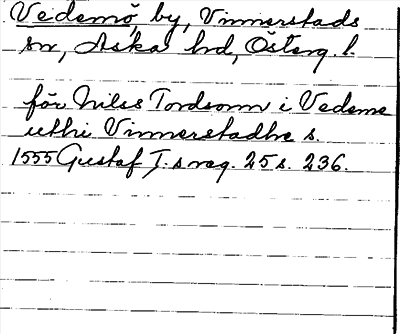 Vedemö, by, Vinnerstads
sn, Aska hd, Österg. l.
för Nilss Tordsonn i Vedeme
uthi Vinnerstadhe s.
1555 Gustaf I:s reg. 25 s. 236.